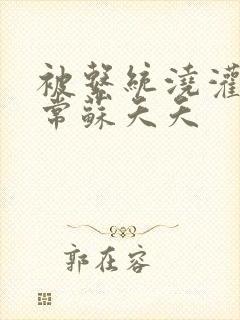 被繫統澆灌
常蘇天天
郭在容